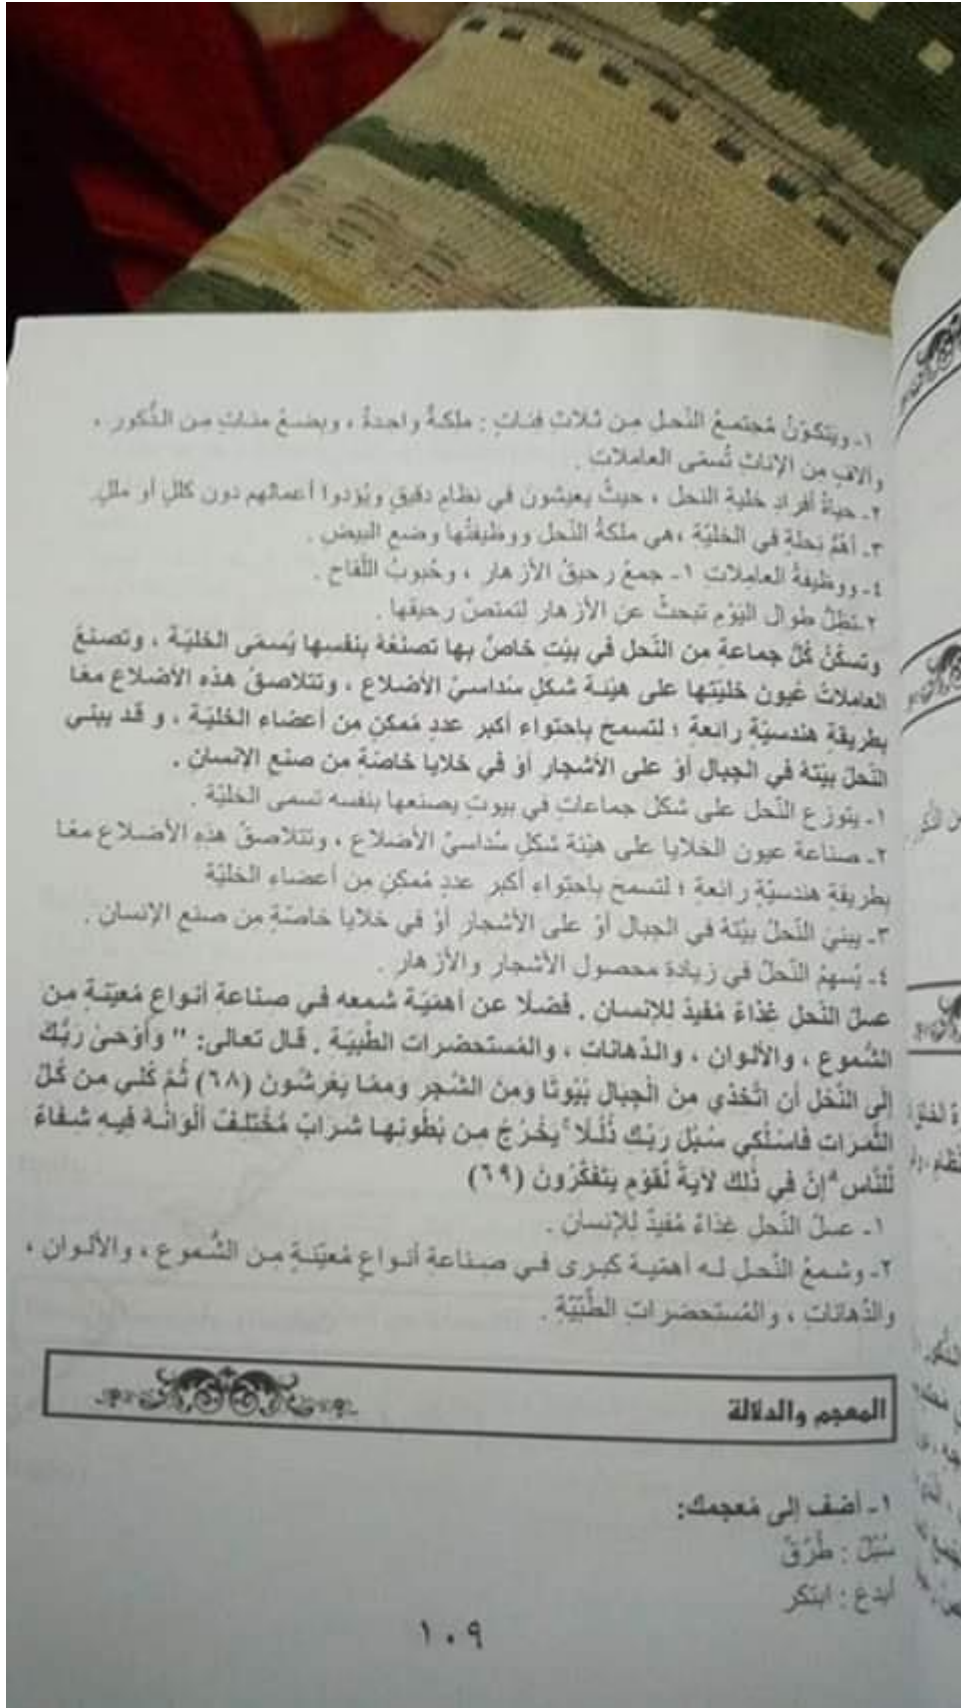 ١- ويتكوّنُ مُجتمعُ النّحل مِن ثلاثِ فئاتٍ : ملكةُ واحدةُ ، وبضعُ مئاتٍ مِن الذُّكور ،
وآلافٍ مِن الإناثِ تُسمّى العاملات .
٢- حياةُ أفرادِ خليةِ النحل ، حيثُ يعيشونَ في نظامٍ دقيقٍ ويُؤدوا أعمالهم دون كللٍ أو مللٍ.
٣- أهمُّ نحلةٍ في الخليّةِ ،هي ملكةُ النّحل ووظيفتُها وضع البيض .
٤- ووظيفةُ العاملاتِ ١- جمعُ رحيقُ الأزهار ، وحُبوبُ اللّقاح .
٢-تظلُّ طوال اليَوْمِ تبحثُ عن الأزهار لتمتصّ رحيقها .
وتسكُنُ كُلُّ جماعة من النّحل في بيْتٍ خاصٍّ بها تصنعُهُ بنفسها يُسمّى الخليّة ، وتصنعُ
العاملاتُ عُيون خليّتها على هيْئة شكلٍ سُداسيّ الأضلاع ، وتتلاصقُ هذه الأضلاع معًا
بطريقة هندسيّةٍ رائعةٍ ؛ لتسمح باحتواء أكبر عددٍ مُمكنٍ من أعضاء الخليّة ، و قد يبني
النّحلُ بيْتهُ في الجبال أوْ على الأشجار أوْ في خلايا خاصّةٍ من صنع الإنسان .
١- يتوزع النّحل على شكل جماعاتٍ في بيوتٍ يصنعها بنفسه تسمى الخليّة .
٢- صناعة عيون الخلايا على هيْئة شكلٍ سُداسيّ الأضلاع ، وتتلاصقُ هذهِ الأضلاع معًا
بطريقةٍ هندسيّةٍ رائعةٍ ؛ لتسمح باحتواءِ أكبر عددٍ مُمكنٍ مِن أعضاءِ الخليّة
٣- يبني النّحلُ بيْتهُ في الجبال أوْ على الأشجار أوْ في خلايا خاصّةٍ مِن صنع الإنسان .
٤- يُسهمُ النّحلُ في زيادةِ محصول الأشجار والأزهار .
عسلُ النّحل غذاءٌ مُفيدٌ للإنسان . فضلًا عن أهميّة شمعه في صناعة أنواعٍ مُعيّنةٍ من
الشُّموع ، والألوان ، والدّهانات ، والمُستحضرات الطّبيّة . قال تعالى: " وَأَوْحىٰ رَبُّكَ
إِلَى النّحْل أن اتّخذي منَ الْجبال بُيُوتًا ومنَ الشّجر وممّا يعْرشُون (٦٨) ثُمّ كُلي من كُلّ
الثّمرات فاسْلُكي سُبُل ربّك ذُلُلًا ۚ يخْرُجُ من بُطُونها شرابٌ مُخْتلفٌ ألْوانُهُ فيه شفاءٌ
لّلنّاس ۗ إنّ في ذٰلك لآيةً لّقوْمٍ يتفكّرُون (٦٩)
١- عسلُ النّحل غذاءٌ مُفيدٌ لِلإنسان .
٢- وشمعُ النّحل له أهمّية كبرى في صناعةِ أنواعٍ مُعيّنةٍ مِن الشُّموع ، والألوان ،
والدّهانات ، والمُستحضراتِ الطّبّيّةِ .
المعجم والدلالة
١- أضف إلى مُعجمك:
سُبُلٌ : طُرُقٌ
أبدع : ابتكر
١٠٩